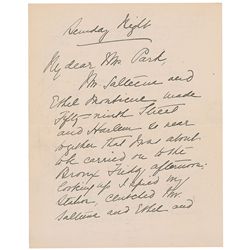 Sunday Night
My dear Mr. Park,
Mr. Salteene and
Ethel Monticue made
Fifty-ninth Street
and Harlem so near
together that I was about
to be carried on to the
Bronx Friday afternoon:
looking up I spied my
station, clutched Mr.
Salteene and Ethel and